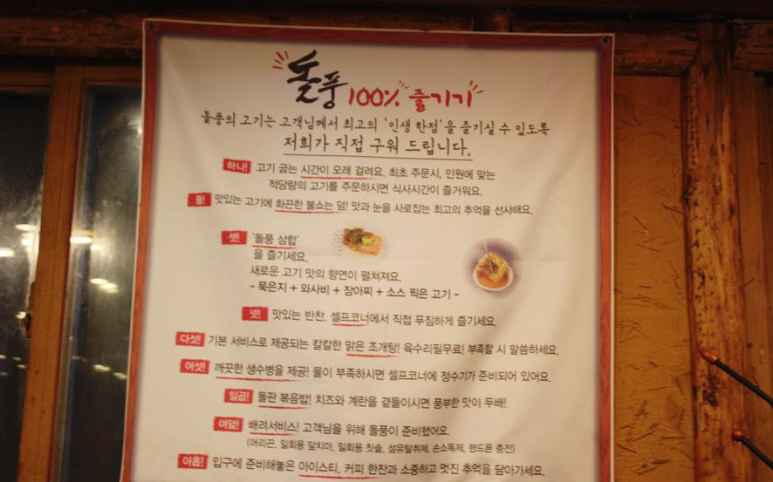 돌풍 100% 즐기기
돌풍의 고기는 고객님께서 최고의 '인생 한점'을 즐기실 수 있도록
저희가 직접 구워 드립니다.
하나! 고기 굽는 시간이 오래 걸려요. 최초 주문시, 인원에 맞는
적당량의 고기를 주문하시면 식사시간이 즐거워요.
둘! 맛있는 고기에 화끈한 불쇼는 덤! 맛과 눈을 사로잡는 최고의 추억을 선사해요.
셋! '돌풍 삼합'
을 즐기세요.
새로운 고기 맛의 향연이 펼쳐져요.
- 묵은지 + 와사비 + 장아찌 + 소스 찍은 고기 -
넷! 맛있는 반찬, 셀프코너에서 직접 푸짐하게 즐기세요.
다섯! 기본 서비스로 제공되는 칼칼한 맑은 조개탕! 육수리필무료! 부족할 시 말씀하세요.
여섯! 깨끗한 생수병을 제공! 물이 부족하시면 셀프코너에 정수기가 준비되어 있어요.
일곱! 돌판 볶음밥! 치즈와 계란을 곁들이시면 풍부한 맛이 두배!
여덟! 배려서비스! 고객님을 위해 돌풍이 준비했어요.
(머리끈, 일회용 앞치마, 일회용 칫솔, 섬유탈취제, 손소독제, 핸드폰 충전)
아홉! 입구에 준비해놓은 아이스티, 커피 한잔과 소중하고 멋진 추억을 담아가세요.